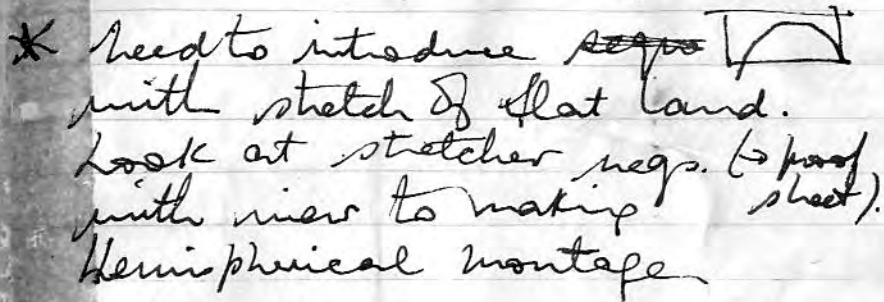 * Need to introduce
with stretch of flat land.
Look at stretcher negs. (→ proof
with view to making sheet).
Hemispherical montage